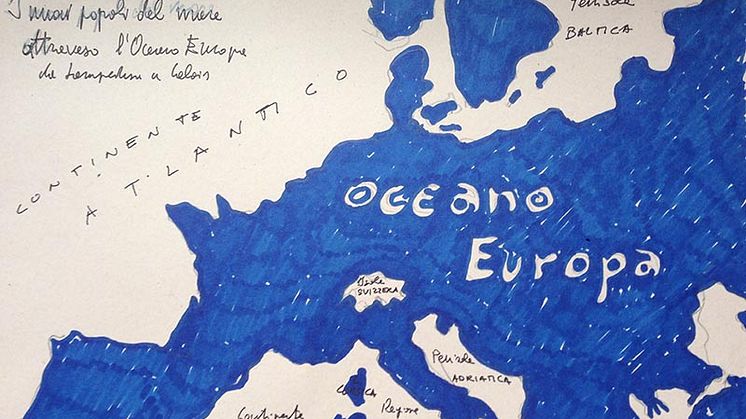 I nuovi popoli del mare
attraverso l'Oceano Europa
da Lampedusa a Calais
CONTINENTE
ATLANTICO
Penisola
BALTICA
OCEANO
Europa
Isola
SVIZZERA
Penisola
ADRIATICA
CORSICA
Continente
Regione